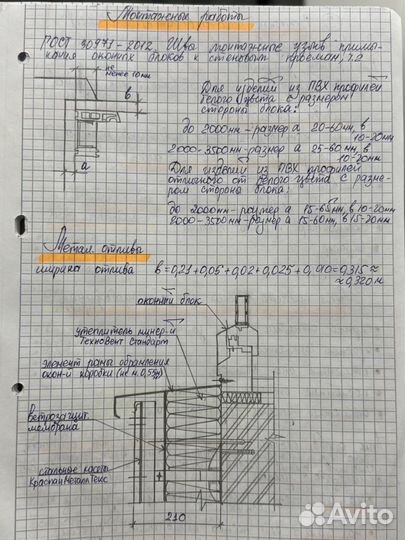 Монтажные работы
ГОСТ 30971-2012. Швы монтажные узлов примы-
кания оконных блоков к стеновым проёмам, п.2
не
менее 10 мм
в
а
Для изделий из ПВХ профилей
белого цвета с размером
стороны блока:
до 2000мм - размер а 20-60мм, в
10-20мм
2000-3500мм - размер а 25-60 мм, в
10-20мм
Для изделий из ПВХ профилей
отличного от белого цвета с разме-
ром стороны блока:
до 2000мм - размер а 15-65мм, в 10-20мм
2000-3500мм - размер а 15-60мм, в 15-20мм
Метал. отливы
ширина отлива в = 0,21 + 0,05 + 0,02 + 0,025 + 0,010 = 0,315 ≈
≈ 0,320 м
оконный блок
утеплитель минер-й
Техновент Стандарт
элемент рамы обрамления
окон-й коробки
ветрозащит.
мембрана
стальные кассеты
КраспанМеталлТекс
210
Avito